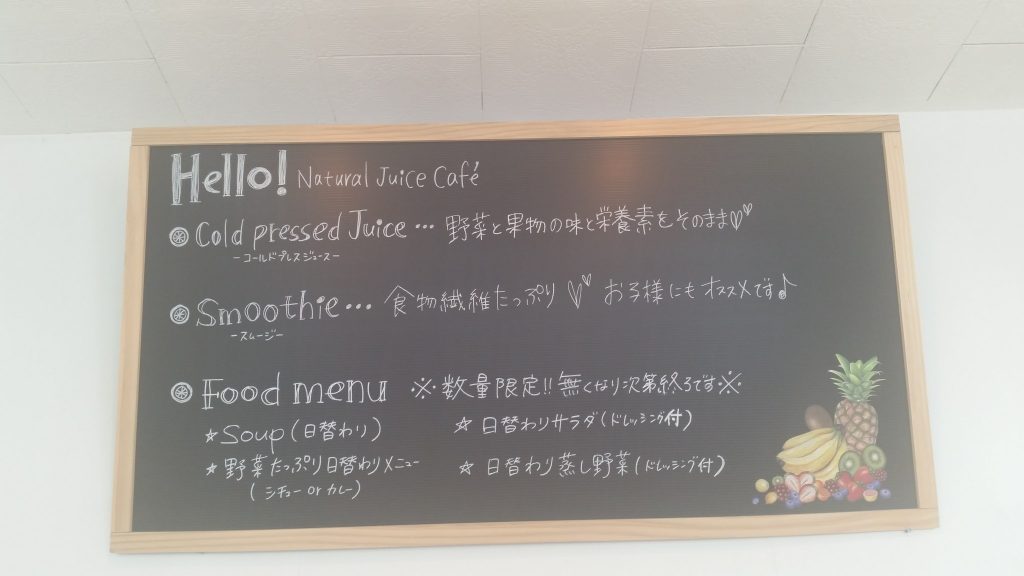 Hello! Natural Juice Café
Cold pressed Juice… 野菜と果物の味と栄養素をそのまま♡♡
-コールドプレスジュース-
Smoothie… 食物繊維たっぷり♡♡ お子様にもオススメです♪
-スムージー-
Food menu ※数量限定!!無くなり次第終了です※
☆Soup(日替わり) ☆日替わりサラダ(ドレッシング付)
☆野菜たっぷり日替わりメニュー ☆日替わり蒸し野菜(ドレッシング付)
(シチュー or カレー)